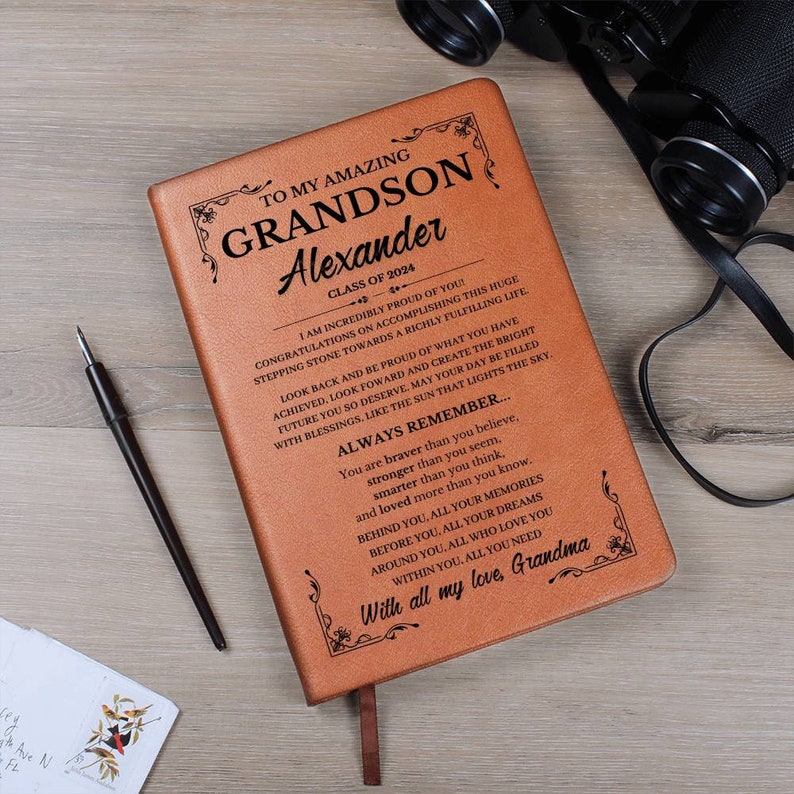 TO MY AMAZING
GRANDSON
Alexander
CLASS OF 2024
I AM INCREDIBLY PROUD OF YOU!
CONGRATULATIONS ON ACCOMPLISHING THIS HUGE
STEPPING STONE TOWARDS A RICHLY FULFILLING LIFE.
LOOK BACK AND BE PROUD OF WHAT YOU HAVE
ACHIEVED. LOOK FOWARD AND CREATE THE BRIGHT
FUTURE YOU SO DESERVE. MAY YOUR DAY BE FILLED
WITH BLESSINGS, LIKE THE SUN THAT LIGHTS THE SKY.
ALWAYS REMEMBER...
You are braver than you believe,
stronger than you seem,
smarter than you think,
and loved more than you know.
BEHIND YOU, ALL YOUR MEMORIES
BEFORE YOU, ALL YOUR DREAMS
AROUND YOU, ALL WHO LOVE YOU
WITHIN YOU, ALL YOU NEED
With all my love, Grandma
Ave N
FL